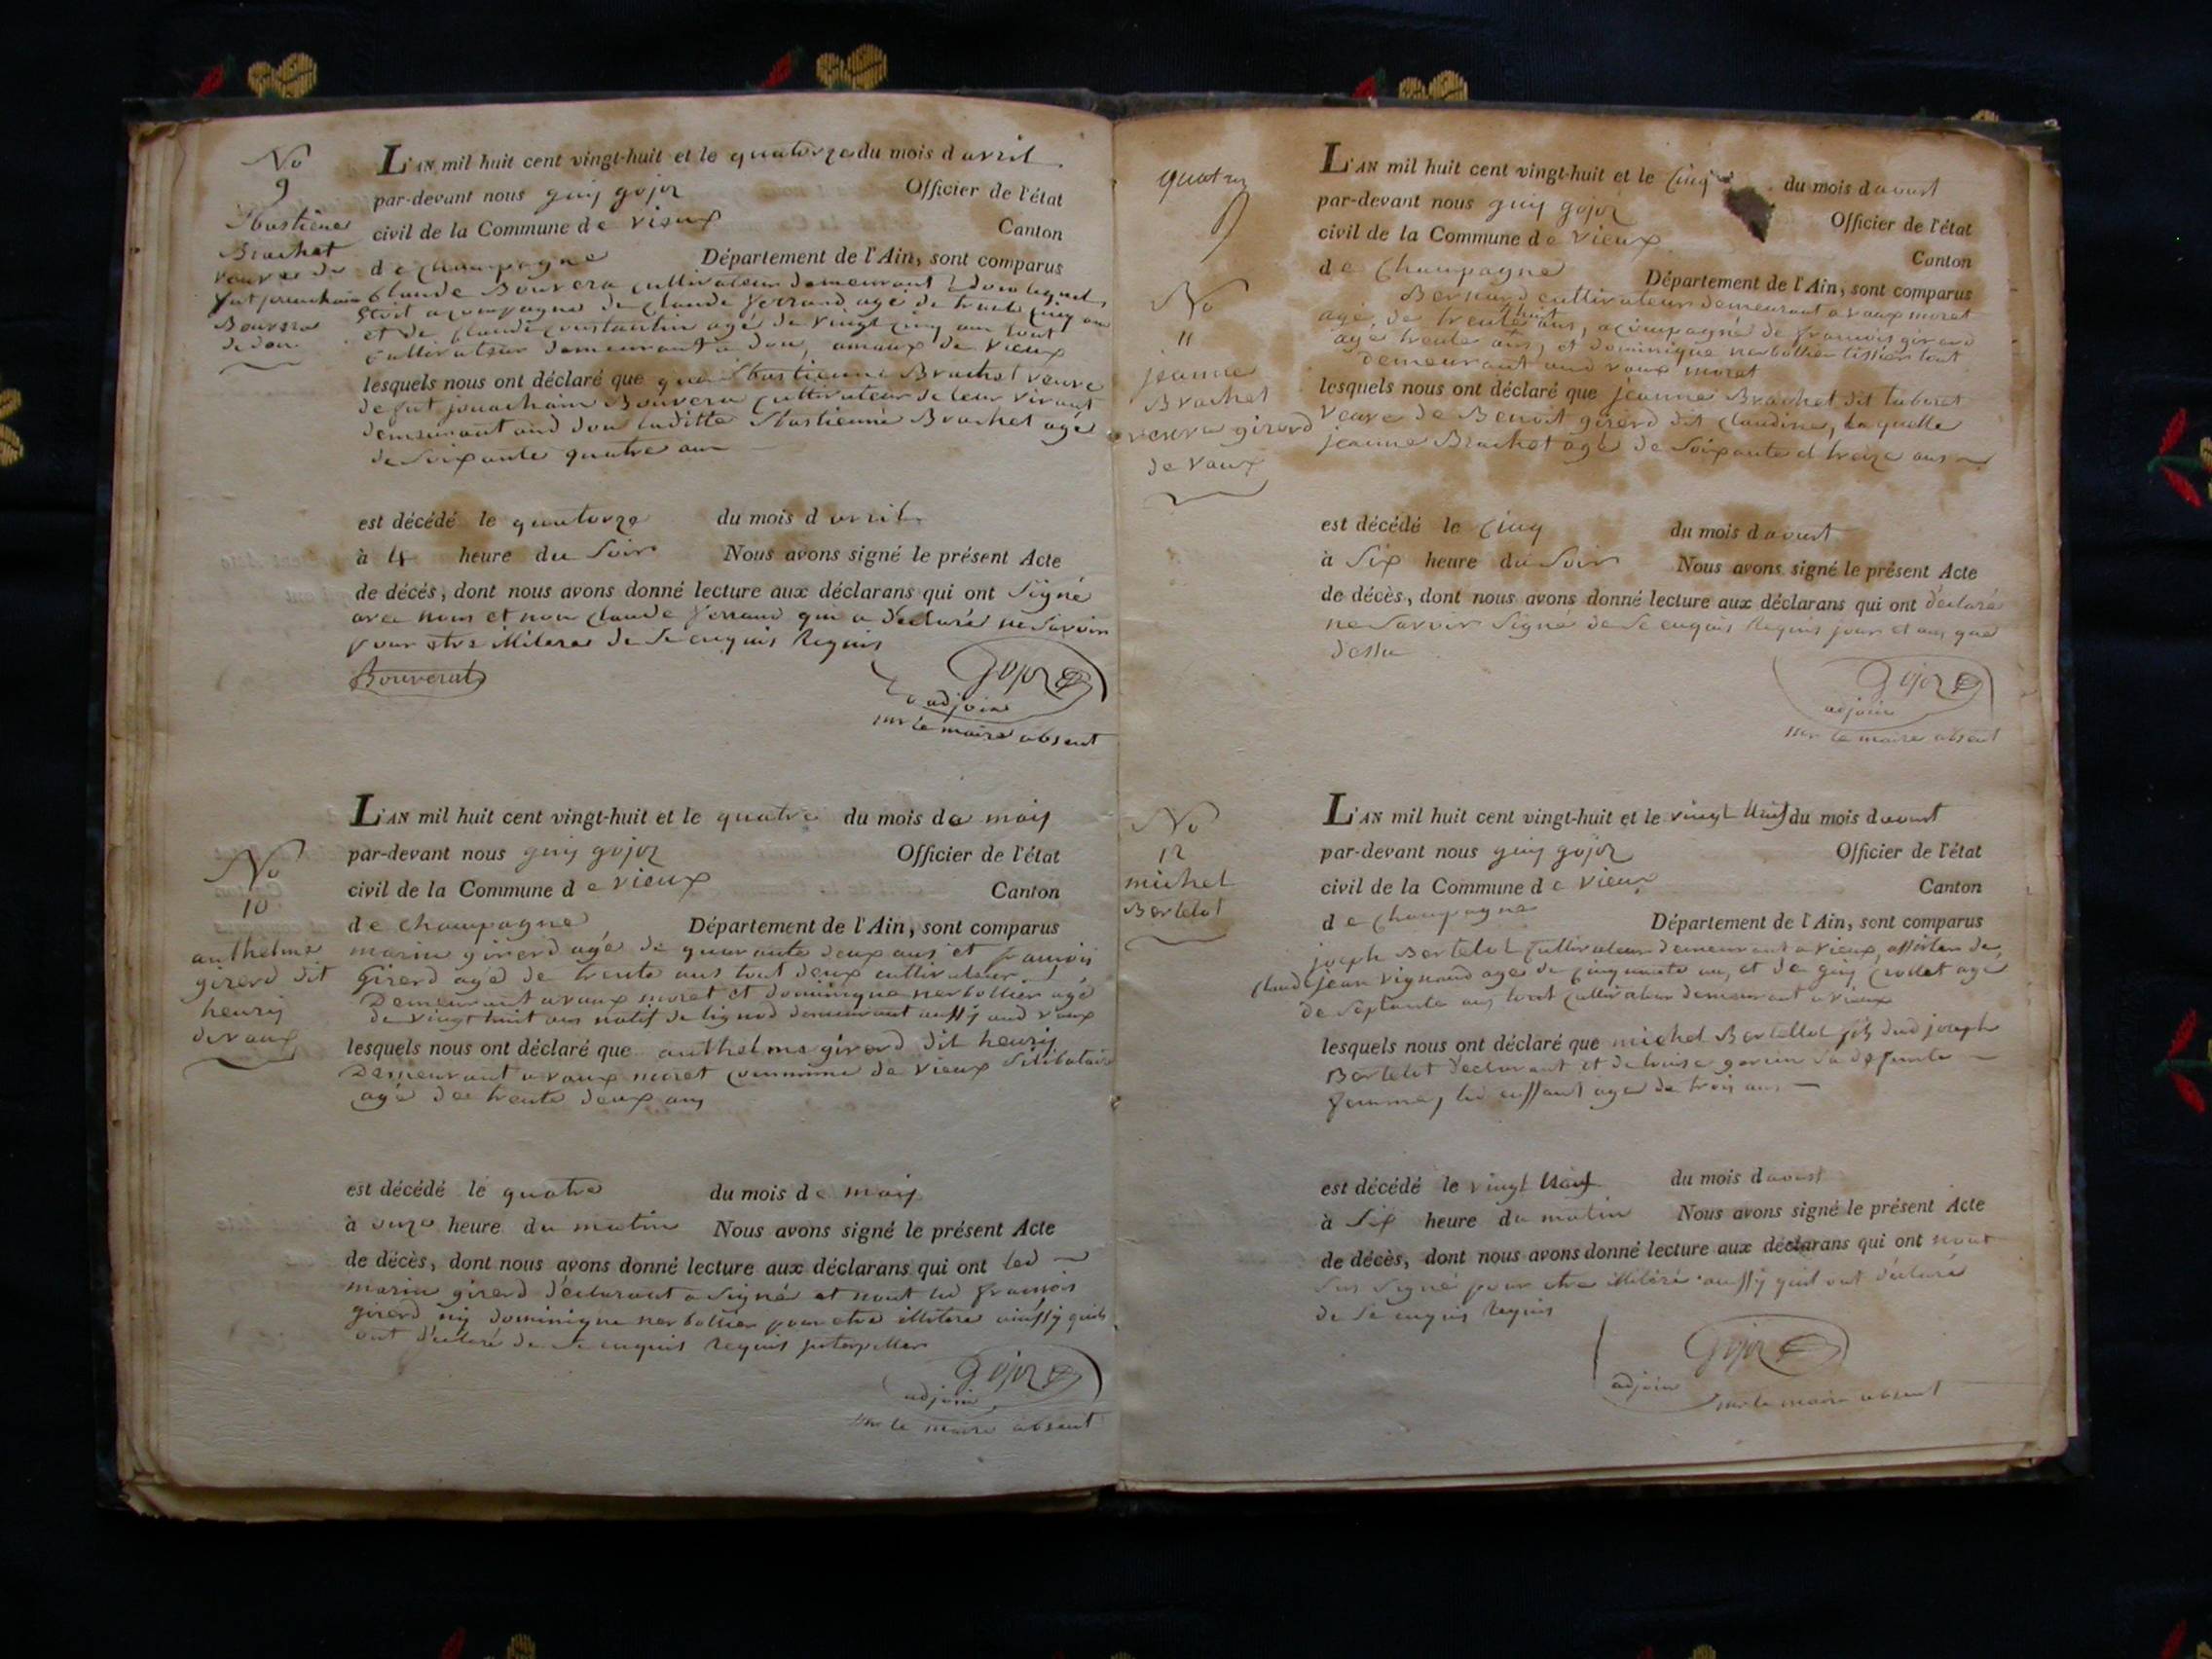 No
9
Bastiene
Brachet
veuve de
fut jouachain
Bouvera
de don
L'AN mil huit cent vingt-huit et le quatorze du mois d avril
par-devant nous guy gojoz Officier de l'état
civil de la Commune de vieux Canton
de champagne Département de l'Ain, sont comparus
Claude Bouvera cultivateur demeurant a don lequel
étoit acompagné de claude ferrand agé de trente cinq ans
et de claude constantin agé de vingt cinq ans tout
cultivateur demeurant a don, amaux de vieux
lesquels nous ont déclaré que que Bastienne Brachet veuve
de fut jouachain Bouvera cultivateur de leur vivant
demeurant aud don laditte Bastienne Brachet agé
de soixante quatre ans
est décédé le quatorze du mois d avril
à 4 heure du soir Nous avons signé le présent Acte
de décès, dont nous avons donné lecture aux déclarans qui ont signé
avec nous et non claude ferrand qui a déclaré ne savoir
pour etre illiteré de se enquis requis
Bouverat
Gojoz
adjoin
pur le maire absent
No
10
anthelme
girerd dit
henrij
de vaux
L'AN mil huit cent vingt-huit et le quatre du mois de maij
par-devant nous guij gojoz Officier de l'état
civil de la Commune de vieux Canton
de champagne Département de l'Ain, sont comparus
marin girerd agé de quarante deux ans et francois
Girerd agé de trente ans tout deux cultivateur
Demeurant a vaux moret et dominique nerbollier agé
de vingt huit ans natif de lignod demeurant aussy aud vaux
lesquels nous ont déclaré que anthelme girerd dit henrij
Demeurant a vaux moret commune de vieux Sélibataire
agé de trente deux ans
est décédé le quatre du mois de maij
à onze heure du matin Nous avons signé le présent Acte
de décès, dont nous avons donné lecture aux déclarans qui ont led
marin girerd déclarant a signé et nont led francois
girerd nij dominique nerbollier pour etre illiteré ainssy quils
ont déclaré de se enquis requis jnterpeller
Gojoz
adjoin
pur le maire absent
quatre
No
11
jeanne
Brachet
veuve girerd
de vaux
L'AN mil huit cent vingt-huit et le cinq du mois d aoust
par-devant nous guij gojoz Officier de l'état
civil de la Commune de vieux Canton
de Champagne Département de l'Ain, sont comparus
Bernard cultivateur demeurant a vaux moret
agé de trente huit ans, acompagné de francois girerd
agé trente ans, et dominique nerbollier tissier tout
demeurant aud vaux moret
lesquels nous ont déclaré que jeanne Brachet dit taboret
veuve de Benoit girerd dit claudine, laquelle
jeanne Brachet agé de soixante et treize ans
est décédé le cinq du mois d aoust
à six heure du soir Nous avons signé le présent Acte
de décès, dont nous avons donné lecture aux déclarans qui ont déclaré
ne savoir signé de se enquis requis jour et an que
dessu
Gojoz
adjoin
pur le maire absent
No
12
michel
Bertelot
L'AN mil huit cent vingt-huit et le vingt huit du mois d aoust
par-devant nous guij gojoz Officier de l'état
civil de la Commune de vieux Canton
de champagne Département de l'Ain, sont comparus
joseph Bertelot cultivateur demeurant a vieux, assister de
claude jean vignand agé de cinquante ans, et de guij collet agé
de septante ans tout cultivateur demeurant a vieux
lesquels nous ont déclaré que michel Bertellot fils dud joseph
Bertelot déclarant et de louise sa defunte
femme, led enffant agé de trois ans
est décédé le vingt huit du mois d aoust
à six heure du matin Nous avons signé le présent Acte
de décès, dont nous avons donné lecture aux déclarans qui ont nont
pas signé pour etre illitéré ainssy quil ont déclaré
de se enquis requis
Gojoz
adjoin pur le maire absent